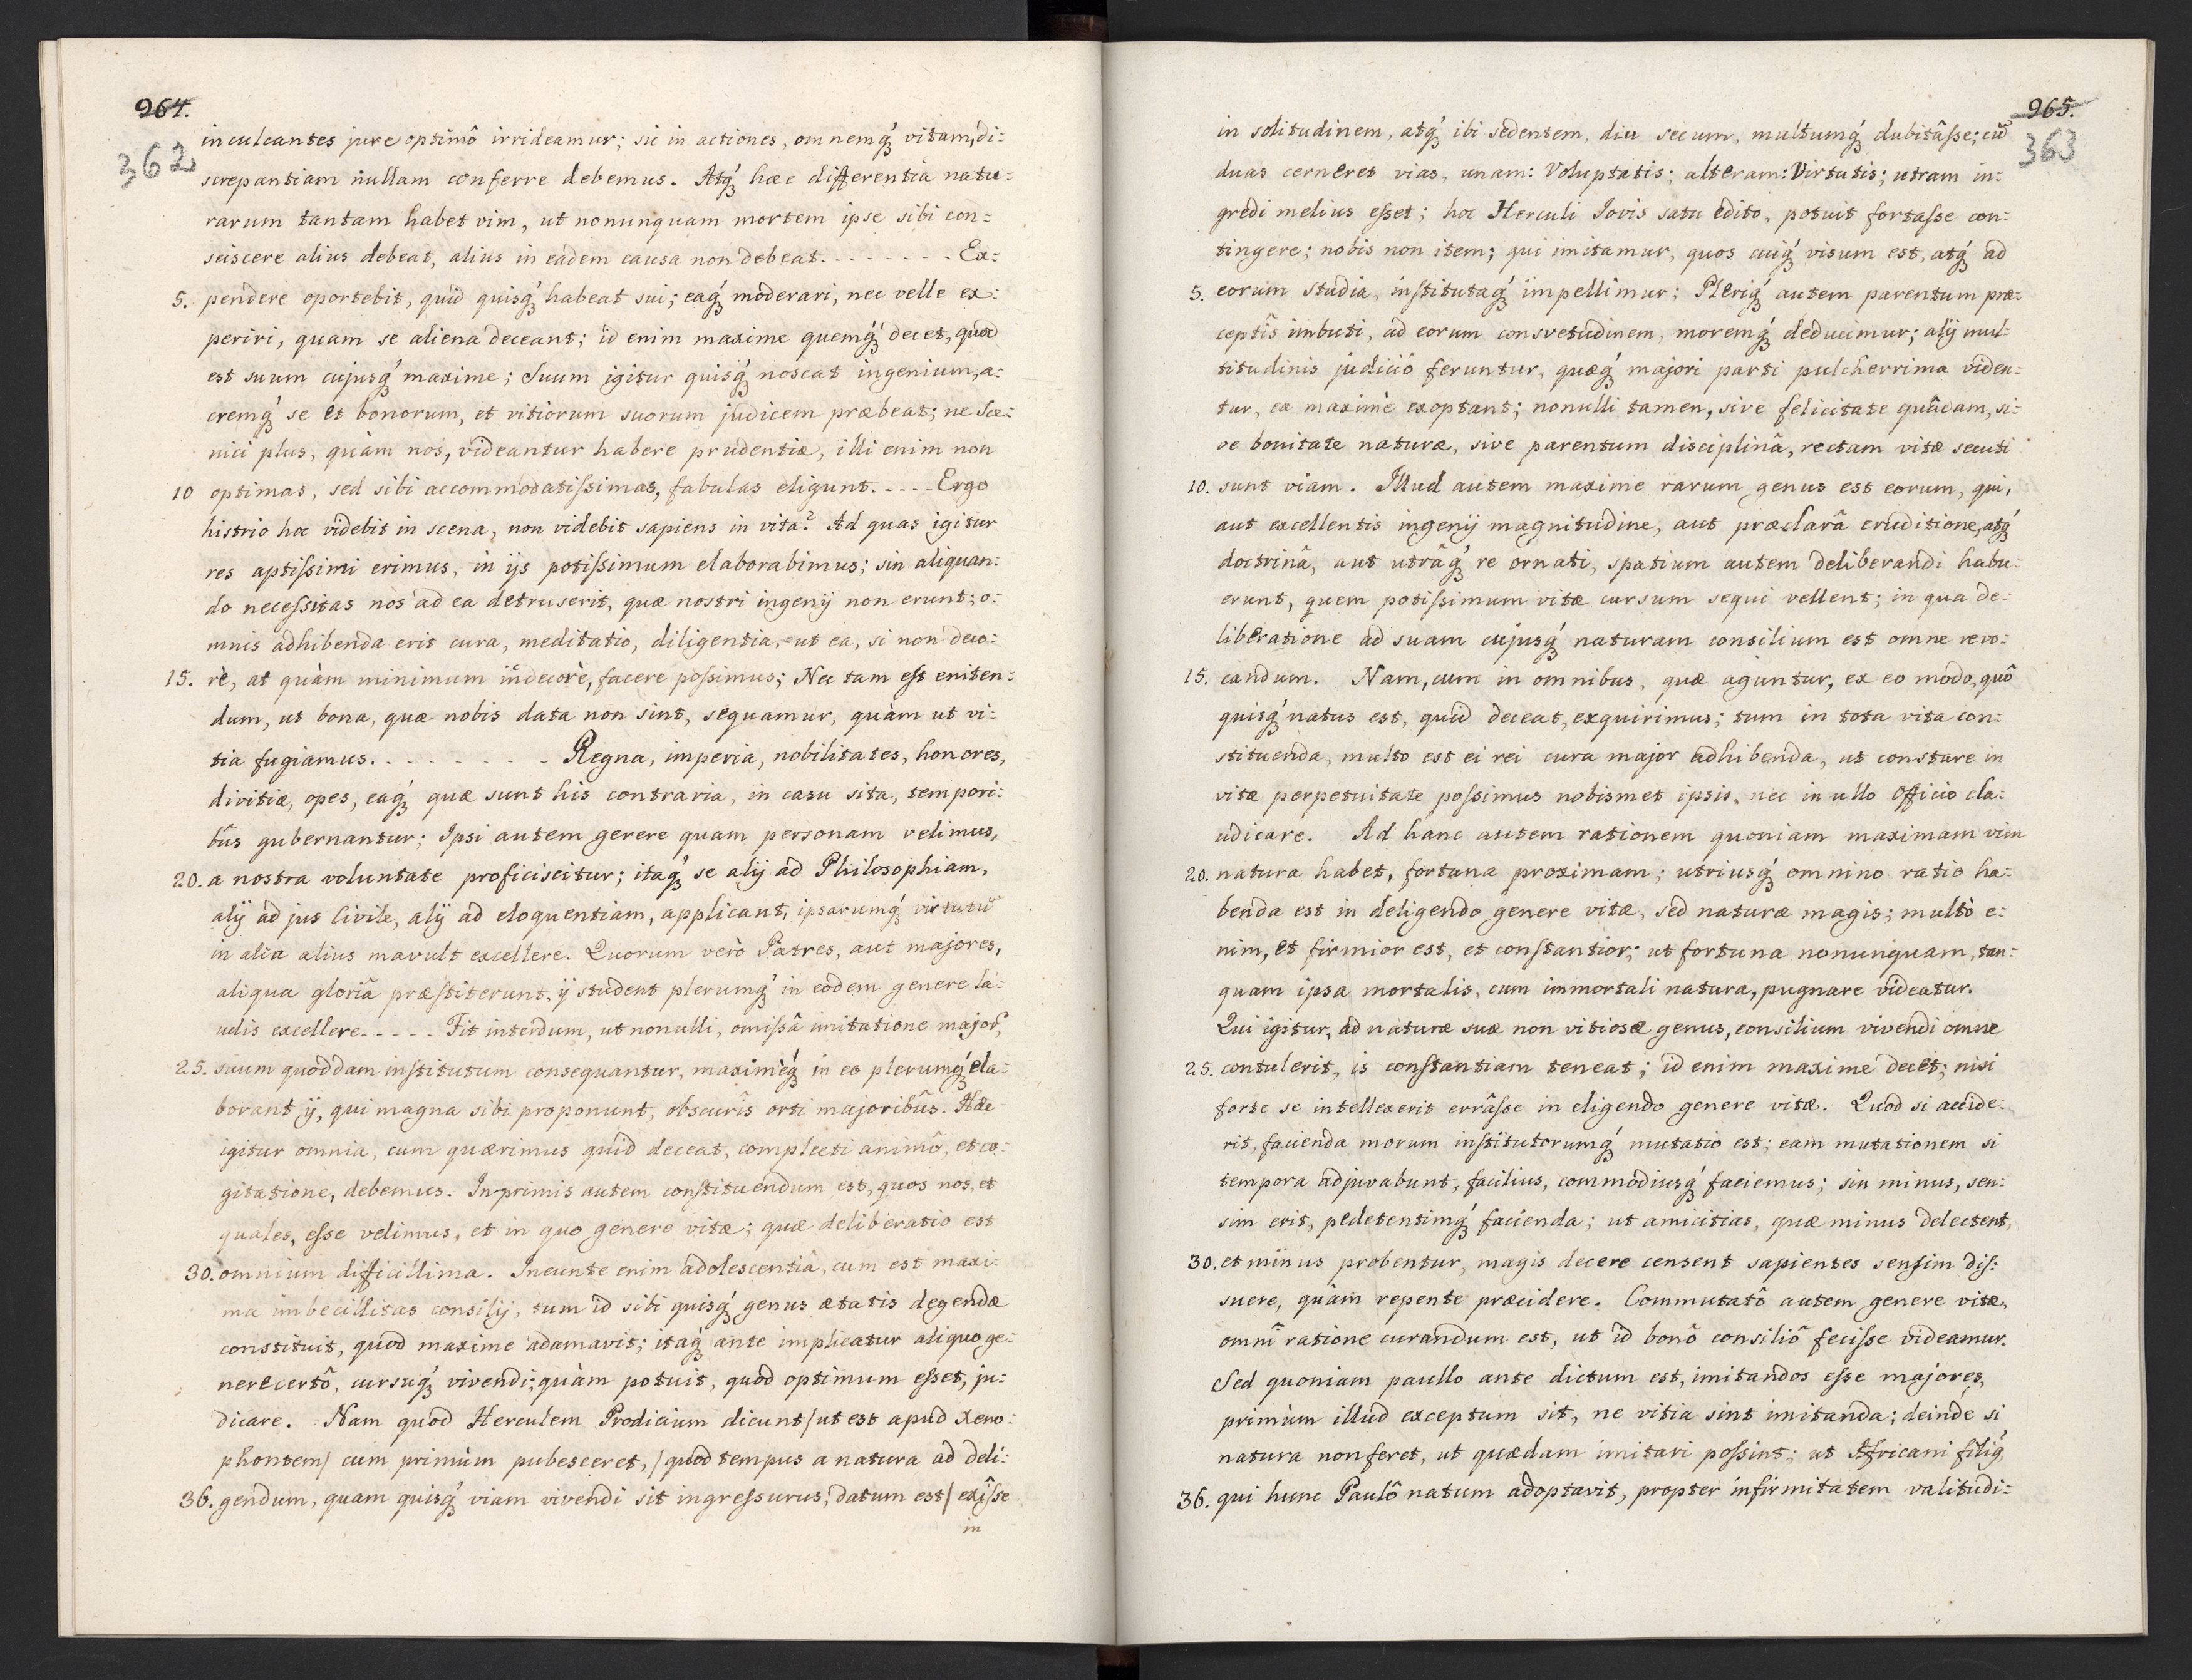 964.
362
inculcantes jure optimô irrideamur; sic in actiones, omnemq́ꝫ vitam, di:
screpantiam nullam conferre debemus. Atq́ꝫ hæc differentia natu:
rarum tantam habet vim, ut nonunquam mortem ipse sibi con:
sciscere alius debeat, alius in eadem causa non debeat. - - - - - - - Ex:
5. pendere oportebit, quid quisq́ꝫ habeat sui; eaq́ꝫ moderari, nec velle ex:
periri, quam se aliena deceant; id enim maxime quemq́ꝫ decet, quod
est suum cujusq́ꝫ maxime; Suum igitur quisq́ꝫ noscat ingenium, a:
cremq́ꝫ se et bonorum, et vitiorum suorum judicem præbeat; ne Sce:
nici plus, quàm nos, videantur habere prudentiæ, illi enim non
10 optimas, sed sibi accommodatiſsimas, fabulas eligunt. - - - - Ergo
histrio hoc videbit in scena, non videbit sapiens in vita? Ad quas igitur
res aptiſsimi erimus, in ijs potiſsimum elaborabimus; sin aliquan:
do neceſsitas nos ad ea detruserit, quæ nostri ingenij non erunt; o:
mnis adhibenda erit cura, meditatio, diligentia, ut ea, si non deco:
15. rè, at quàm minimum indecorè, facere poſsimus; Nec tam eſt eniten:
dum, ut bona, quæ nobis data non sint, sequamur, quàm ut vi:
tia fugiamus. - - - - - - - - Regna, imperia, nobilitates, honores,
divitiæ, opes, eaq́ꝫ quæ sunt his contraria, in casu sita, tempori:
bûs gubernantur; Ipsi autem gerere quam personam velimus,
20. a nostra voluntate proficiscitur; itaq́ꝫ se alij ad Philosophiam,
alij ad jus Civile, alij ad eloquentiam, applicant, ipsarumq́ꝫ virtutū
in alia alius mavult excellere. Quorum verò Patres, aut majores,
aliqua gloriâ præſtiterunt, ij student plerumq́ꝫ in eodem genere la:
udis excellere. - - - - - Fit interdum, ut nonulli, omiſsâ imitatione major̃,
25. suum quoddam inſtitutum consequantur, maximèq́ꝫ in eo plerumq́ꝫ ela:
borant ij, qui magna sibi proponunt, obscurîs orti majoribûs. Hæc
igitur omnia, cum quærimus quid deceat, complecti animô, et co:
gitatione, debemus. Inprimis autem conſtituendum est, quos nos, et
quales, eſse velimus, et in quo genere vitæ; quæ deliberatio est
30. omnium difficillima. Ineunte enim adolescentiâ, cum est maxi:
ma imbecillitas consilij, tum id sibi quisq́ꝫ genus ætatis degendæ
constituit, quod maxime adamavit; itaq́ꝫ ante implicatur aliquo ge:
nere certô, cursuq́ꝫ vivendi; quàm potuit, quod optimum eſset, ju:
dicare. Nam quod Herculem Prodicium dicunt/ ut est apud Xeno:
phontem/ cum primùm pubesceret, / quod tempus a natura ad deli:
36. gendum, quam quisq́ꝫ viam vivendi sit ingreſsurus, datum est/ exîſse
in
965.
363
in solitudinem, atq́ꝫ ibi sedentem, diu secum, multumq́ꝫ dubitâſse; cū
duas cerneret vias, unam: Voluptatis; alteram: Virtutis; utram in:
gredi melius eſset; hoc Herculi Iovis satu edito, potuit fortaſse con:
tingere; nobis non item; qui imitamur, quos cuiq́ꝫ visum est, atq́ꝫ ad
5. eorum studia, inſtitutaq́ꝫ impellimur; Pleriq́ꝫ autem parentum præ:
ceptîs imbuti, ad eorum consvetudinem, moremq́ꝫ deducimur; alij mul:
titudinis judiciô feruntur, quæq́ꝫ majori parti pulcherrima viden:
tur, ea maximè exoptant; nonulli tamen, sive felicitate quâdam, si:
ve bonitate naturæ, sive parentum disciplinâ, rectam vitæ secuti
10. sunt viam. Illud autem maxime rarum genus est eorum, qui,
aut excellentis ingenij magnitudine, aut præclarâ eruditione, atq́ꝫ
doctrinâ, aut utrâq́ꝫ re ornati, spatium autem deliberandi habu:
erunt, quem potiſsimum vitæ cursum sequi vellent; in qua de:
liberatione ad suam cujusq́ꝫ naturam consilium est omne revo:
15. candum. Nam, cum in omnibus, quæ aguntur, ex eo modo, quô
quisq́ꝫ natus est, quid deceat, exquirimus; tum in tota vita con:
stituenda, multo est ei rei cura major adhibenda, ut constare in
vitæ perpetuitate poſsimus nobismet ipsis, nec in ullo Officio cla:
udicare. Ad hanc autem rationem quoniam maximam vim
20. natura habet, fortuna proximam; utriusq́ꝫ omnino ratio ha:
benda est in deligendo genere vitæ, sed naturæ magis; multò e:
nim, et firmior est, et conſtantior; ut fortuna nonunquam, tan:
quam ipsa mortalis, cum immortali natura, pugnare videatur.
Qui igitur, ad naturæ suæ non vitiosæ genus, consilium vivendi omne
25. contulerit, is conſtantiam teneat; id enim maxime decet; nisi
forte se intellexerit errâſse in eligendo genere vitæ. Quod si accide:
rit, facienda morum inſtitutorumq́ꝫ mutatio est; eam mutationem si
tempora adjuvabunt, facilius, commodiusq́ꝫ faciemus; sin minus, sen:
sim erit, pedetentimq́ꝫ facienda; ut amicitias, quæ minus delectent,
30. et minus probentur, magis decere censent sapientes senſim diſ:
suere, quàm repente præcidere. Commutatô autem genere vitæ,
omnî ratione curandum est, ut id bonô consiliô feciſse videamur.
Sed quoniam paullo ante dictum est, imitandos eſse majores,
primùm illud exceptum sit, ne vitia sint imitanda; deinde si
natura non feret, ut quædam imitari poſsint; ut Africani filiq,
36. qui hunc Paulô natum adoptavit, propter infirmitatem valitudi: